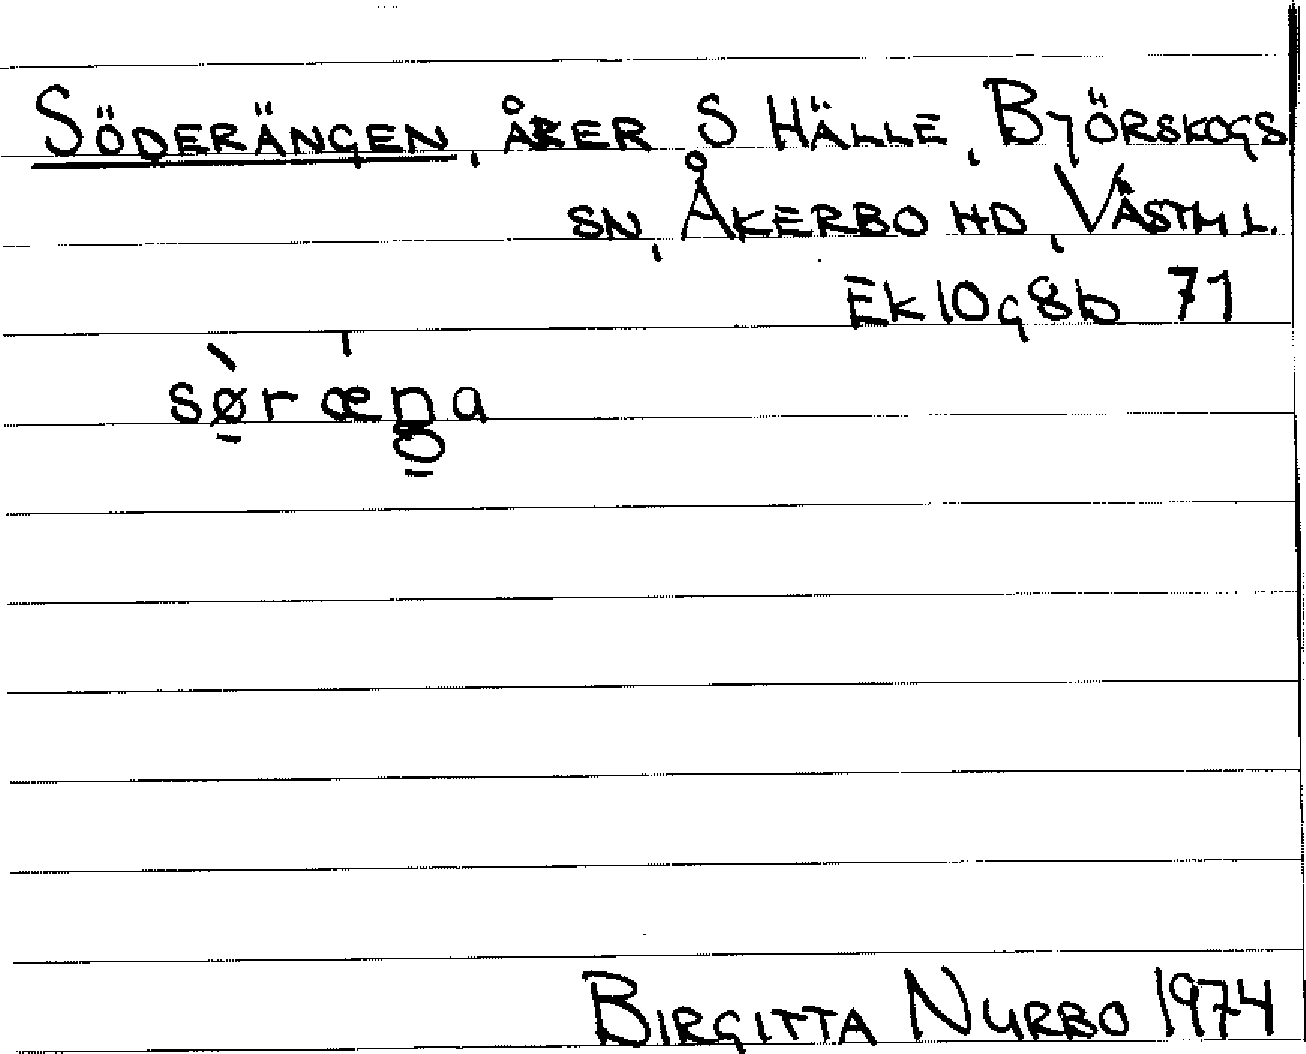 SÖDERÄNGEN, ÅKER S HÄLLE, BJÖRSKOGS
SN, ÅKERBO HD, VÄSTM L.
Ek 10g8b 71
sø̱̀r ˈæŋa
BIRGITTA NURBO 1974